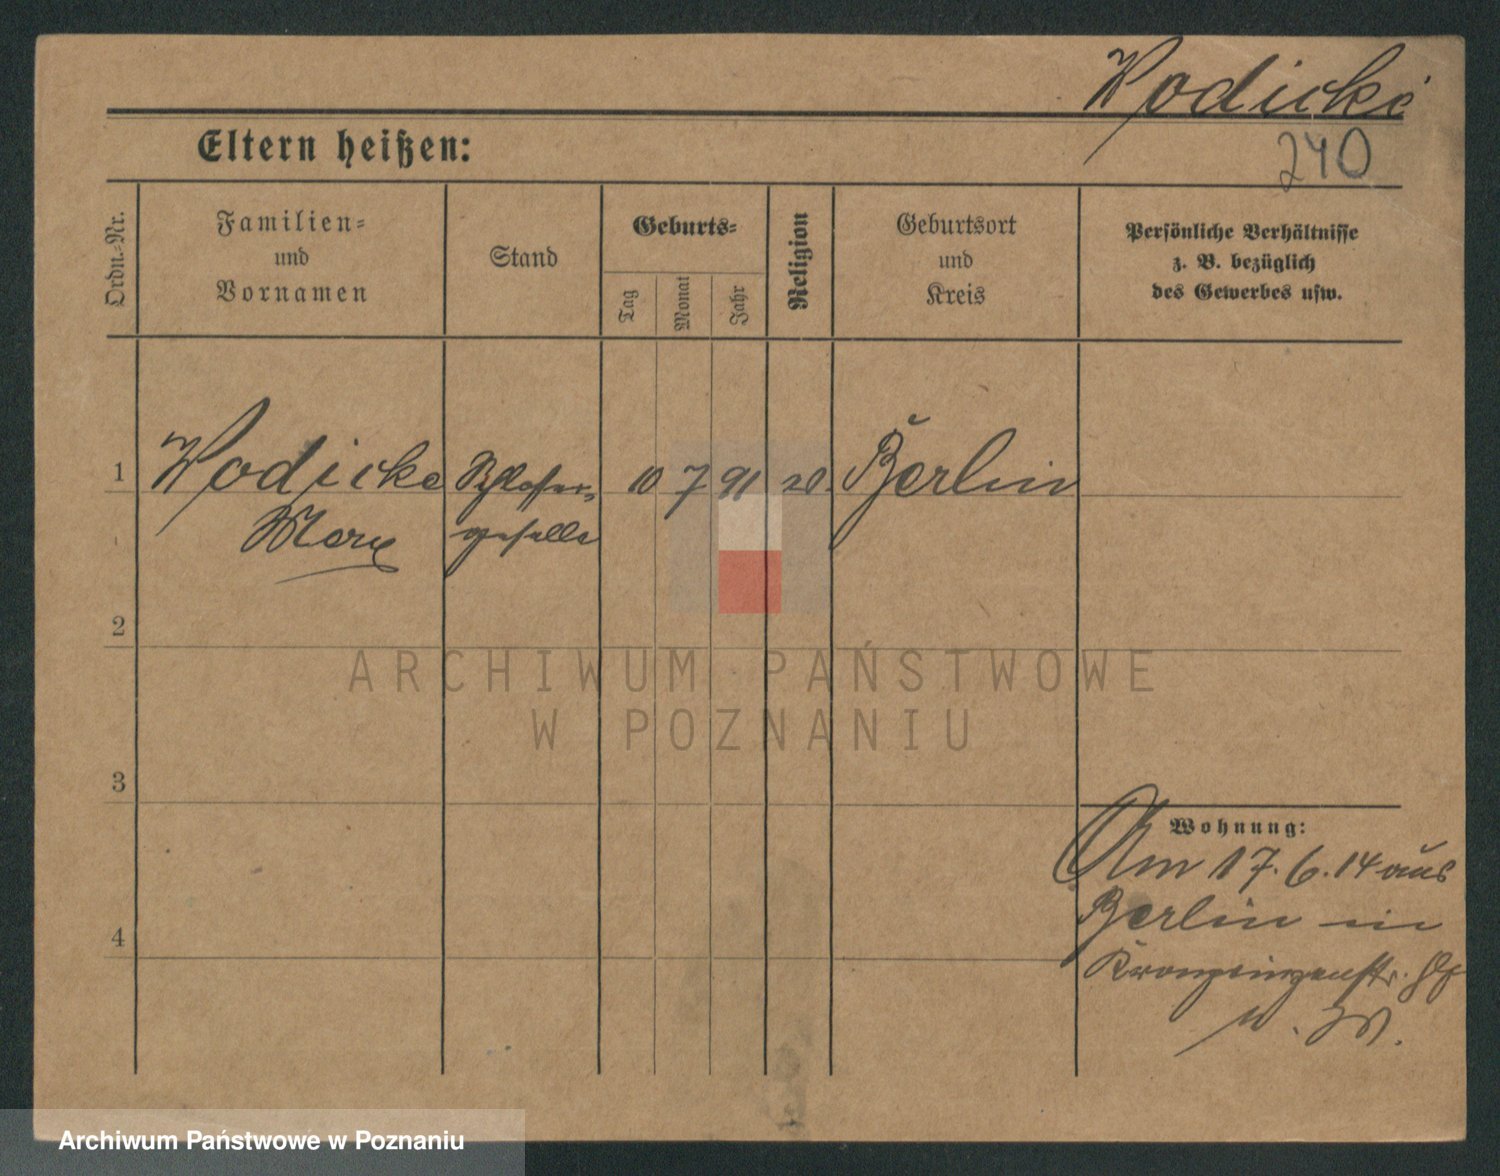 Wodicke
240
Eltern heißen:
Ordn.-Nr.
Familien-
und
Vornamen
Stand
Geburts-
Tag
Monat
Jahr
Religion
Geburtsort
und
Kreis
Persönliche Verhältnisse
z. B. bezüglich
des Gewerbes usw.
1 Wodicke Schlosser- 10 7 91 Berlin
Max geselle
2
ARCHIWUM PAŃSTWOWE
W POZNANIU
3
Wohnung:
Am 17. 6. 14 aus
Berlin in
4
Kronprinzenstr.
Archiwum Państwowe w Poznaniu